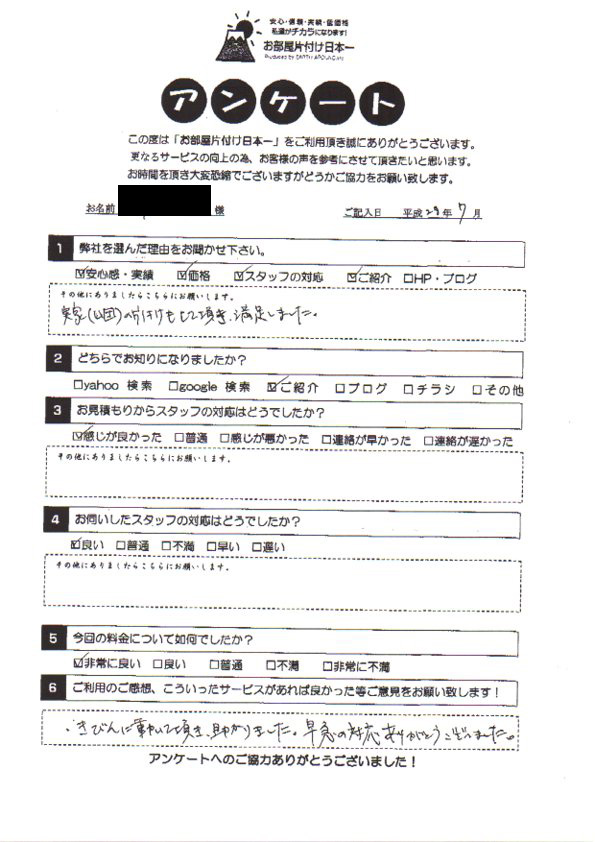 安心・信頼・実績・低価格
私達がチカラになります!
お部屋片付け日本一
アンケート
この度は「お部屋片付け日本一」をご利用頂き誠にありがとうございます。
更なるサービスの向上の為、お客様の声を参考にさせて頂きたいと思います。
お時間を頂き大変恐縮でございますがどうかご協力をお願い致します。
お名前 様 ご記入日 平成28年7月
1 弊社を選んだ理由をお聞かせ下さい。
☑安心感・実績 ☑価格 ☑スタッフの対応 ☑ご紹介 □HP・ブログ
その他にありましたらこちらにお願いします。
実家の片付けもして頂き、満足しました。
2 どちらでお知りになりましたか?
□yahoo 検索 □google 検索 ☑ご紹介 □ブログ □チラシ □その他
3 お見積もりからスタッフの対応はどうでしたか?
☑感じが良かった □普通 □感じが悪かった □連絡が早かった □連絡が遅かった
その他にありましたらこちらにお願いします。
4 お伺いしたスタッフの対応はどうでしたか?
☑良い □普通 □不満 □早い □遅い
その他にありましたらこちらにお願いします。
5 今回の料金について如何でしたか?
☑非常に良い □良い □普通 □不満 □非常に不満
6 ご利用のご感想、こういったサービスがあれば良かった等ご意見をお願い致します!
・きびんに動いて頂き、助かりました。早急の対応ありがとうございました。
アンケートへのご協力ありがとうございました!